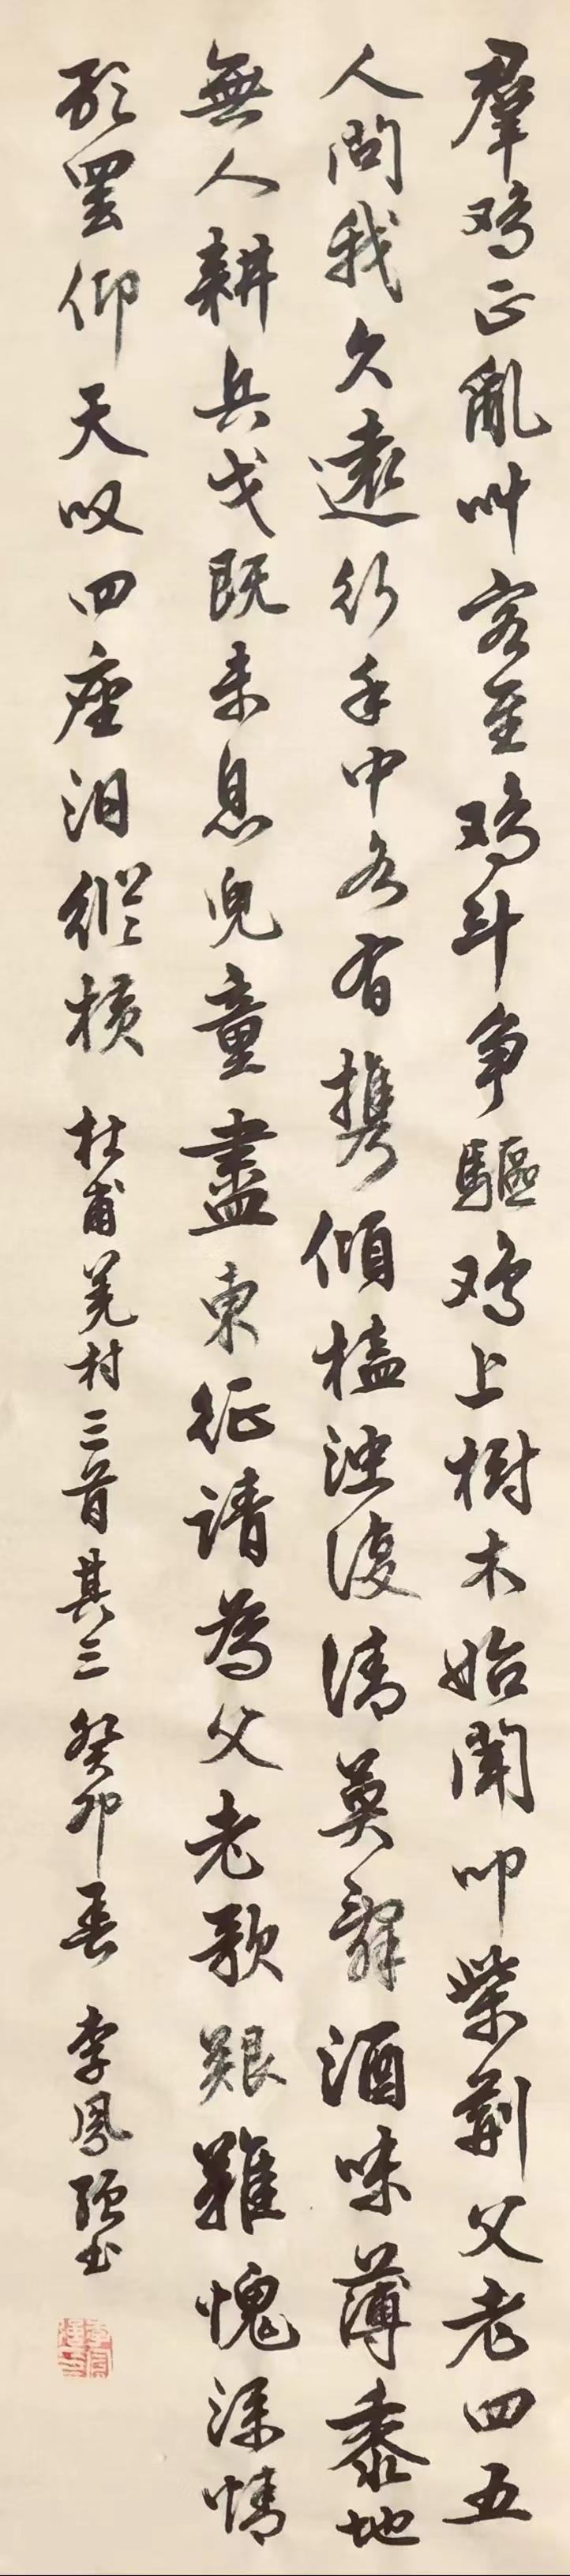 羣鸡正亂叫客至鸡斗争驅鸡上樹木始聞叩柴荆父老四五
人問我久遠行手中各有携傾榼浊復清莫辭酒味薄黍地
無人耕兵戈既未息兒童盡東征请為父老歌艰難愧深情
歌罢仰天叹四座泪縱横 杜甫羌村三首其三 癸卯春 李凤强书